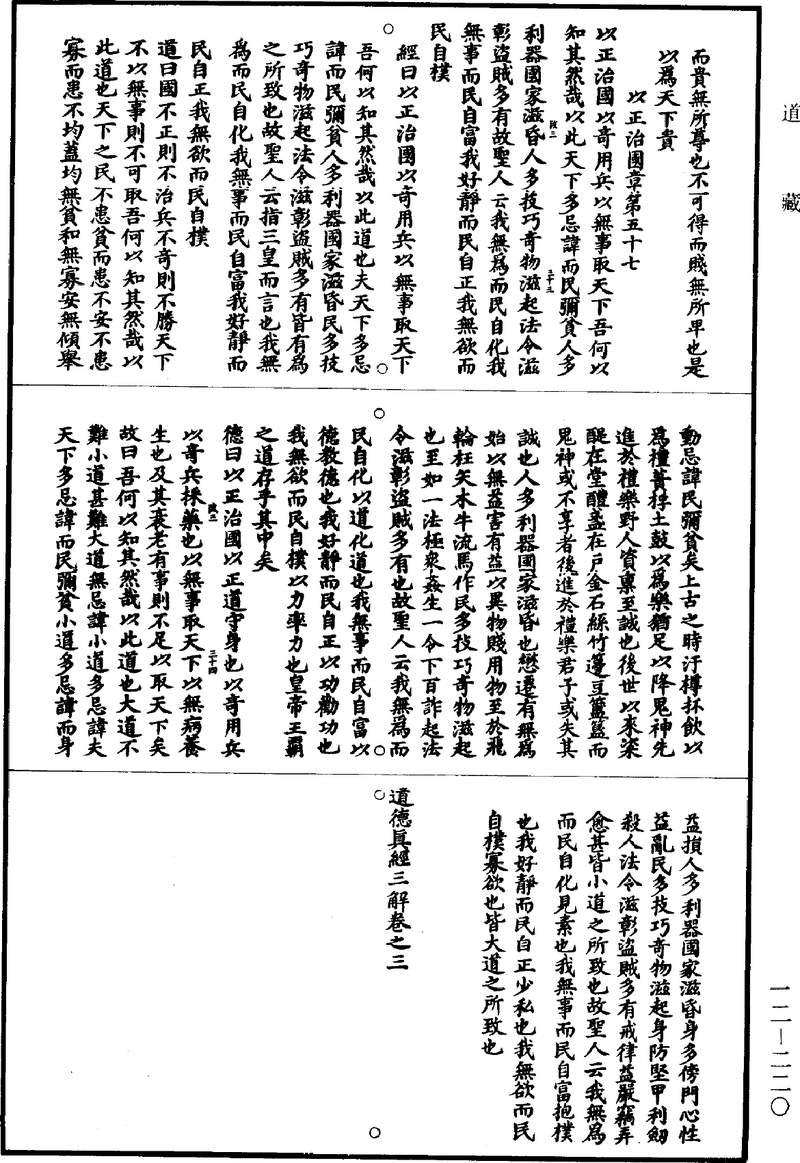 道藏
而貴無所尊也不可得而賤無所卑也是
以爲天下貴
以正治國章第五十七
以正治國以奇用兵以無事取天下吾何以
知其然哉以此天下多忌諱而民彌貧人多
利器國家滋昏人多技巧奇物滋起法令滋
彰盜賊多有故聖人云我無爲而民自化我
無事而民自富我好靜而民自正我無欲而
民自樸
經曰以正治國以奇用兵以無事取天下
吾何以知其然哉以此道也夫天下多忌
諱而民彌貧人多利器國家滋昏民多技
巧奇物滋起法令滋彰盜賊多有皆有爲
之所致也故聖人云指三皇而言也我無
爲而民自化我無事而民自富我好靜而
民自正我無欲而民自樸
道曰國不正則不治兵不奇則不勝天下
不以無事則不可取吾何以知其然哉以
此道也天下之民不患貧而患不安不患
寡而患不均蓋均無貧和無寡安無傾舉
動忌諱民彌貧矣上古之時汙樽抔飲以
爲禮蕢桴土鼓以爲樂猶足以降鬼神先
進於禮樂野人資稟至誠也後世以來粢
醍在堂醴盞在戶金石絲竹籩豆簠簋而
鬼神或不享者後進於禮樂君子或失其
誠也人多利器國家滋昏也懋遷有無爲
始以無益害有益以異物賤用物至於飛
輪枉矢木牛流馬作民多技巧奇物滋起
也至如一法極衆姦生一令下百詐起法
令滋彰盜賊多有也故聖人云我無爲而
民自化以道化道也我無事而民自富以
德教德也我好靜而民自正以功勸功也
我無欲而民自樸以力率力也皇帝王霸
之道存乎其中矣
德曰以正治國以正道守身也以奇用兵
以奇兵採藥也以無事取天下以無病養
生也及其衰老有事則不足以取天下矣
故曰吾何以知其然哉以此道也大道不
難小道甚難大道無忌諱小道多忌諱夫
天下多忌諱而民彌貧小道多忌諱而身
益損人多利器國家滋昏身多傍門心性
益亂民多技巧奇物滋起身防堅甲利劒
殺人法令滋彰盜賊多有戒律益嚴竊弄
愈甚皆小道之所致也故聖人云我無爲
而民自化見素也我無事而民自富抱樸
也我好靜而民自正少私也我無欲而民
自樸寡欲也皆大道之所致也
道德眞經三解卷之三
一二—二二〇